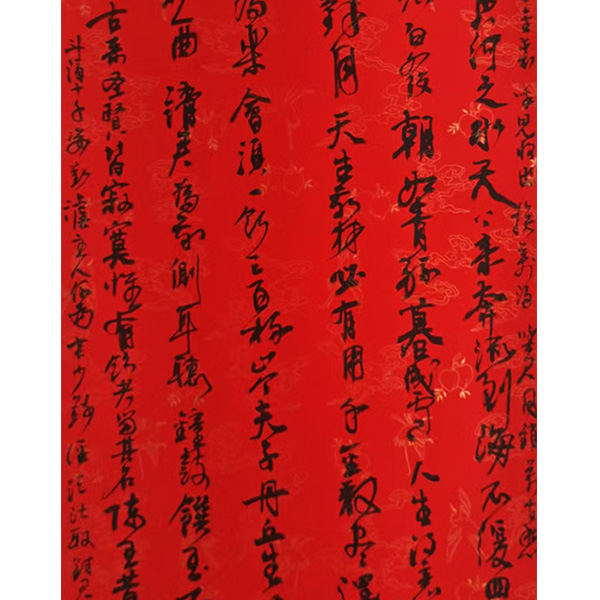 金裘 呼兒将出 换美酒 與尔同銷萬古愁
河之水天上来奔流到海不復回
白髮朝如青絲暮成雪人生得意
對月天生我材必有用千金散尽還
為樂會須一飲三百杯岑夫子丹丘生
曲請君為我側耳聽鐘鼓饌玉不
古來聖賢皆寂寞惟有飲者留其名陳王昔
斗酒十千恣歡謔主人何為言少錢徑須沽取對君